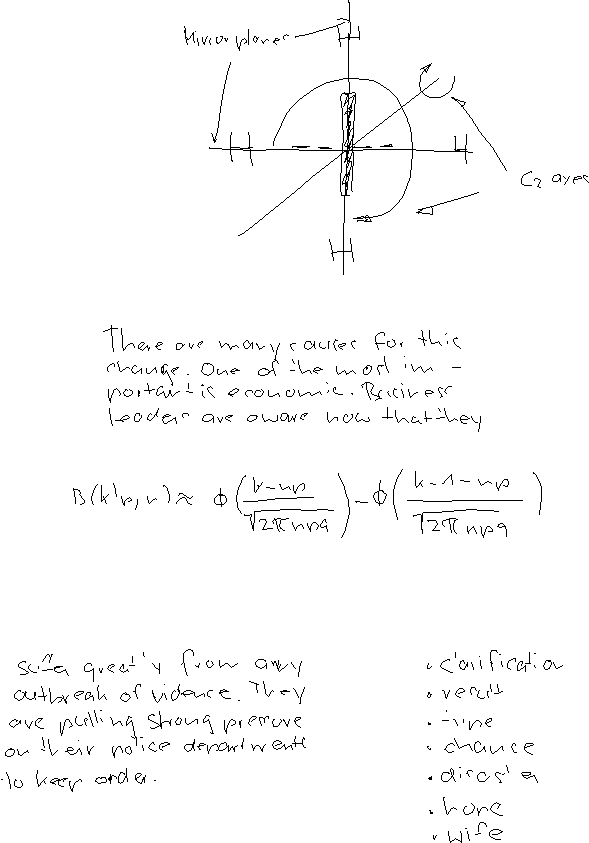 Mirror planes
H
H
H
C2 axes
H
There are many causes for this
change. One of the most im -
portant is economic. Business
leaders are aware now that they
B(k|p,n) ≈ ϕ((k-np)/√(2πnpq)) - ϕ((k-1-np)/√(2πnpq))
suffer greatly from any
outbreak of violence. They
are putting strong pressure
on their police departments
to keep order.
• clarification
• result
• time
• chance
• disaster
• home
• wife